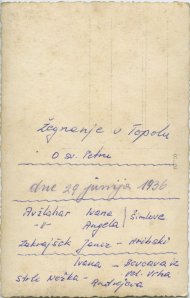 Žegnanje v Topolu
O sv. Petru
dne 29 junija 1936
Avžlahar Ivana } Šimluve
-"- Angela
Zakrajšek Janez - Hribski
Ivana -
Strle Nežka - Andrejova